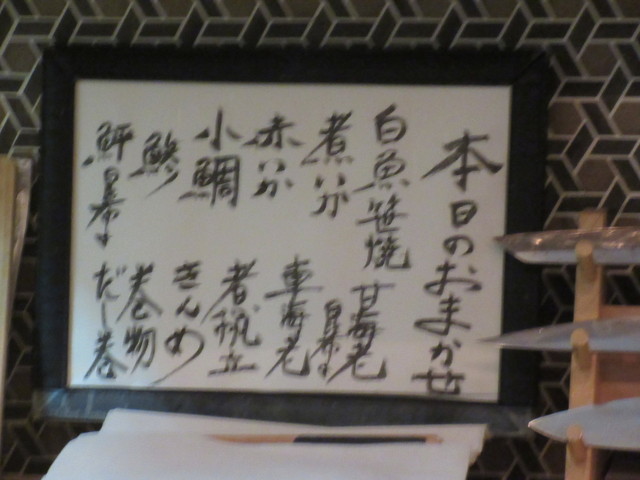 本日のおまかせ
白魚笹焼
煮いか
赤いか
小鯛
鯵
鮃昆布〆
甘海老
昆布〆
車海老
煮帆立
きんめ
巻物
だし巻